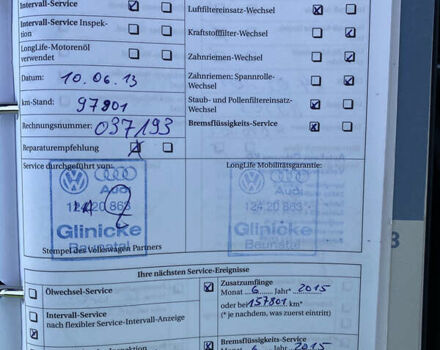 Intervall-Service
Luftfiltereinsatz-Wechsel
Intervall-Service Inspek-
tion
Kraftstofffilter-Wechsel
LongLife-Motorenöl
verwendet
Zahnriemen-Wechsel
Datum: 10.06.13
Zahnriemen: Spannrolle-
Wechsel
km-Stand: 97801
Staub- und Pollenfiltereinsatz-
Wechsel
Rechnungsnummer: 037193
Bremsflüssigkeits-Service
Reparaturempfehlung
Service durchgeführt von:
LongLife Mobilitätsgarantie:
Audi
Audi
124 20 863
124 20 863
Glinicke
Glinicke
Baunatal
Baunatal
Stempel des Volkswagen Partners
3
Ihre nächsten Service-Ereignisse
Ölwechsel-Service
Zusatzumfänge
Monat 6 Jahr* 2015
oder bei 157801 km*
(* je nachdem, was zuerst eintritt)
Intervall-Service
nach flexibler Service-Intervall-Anzeige
Bremsflüssigkeits-Service
Monat 6 Jahr 2015